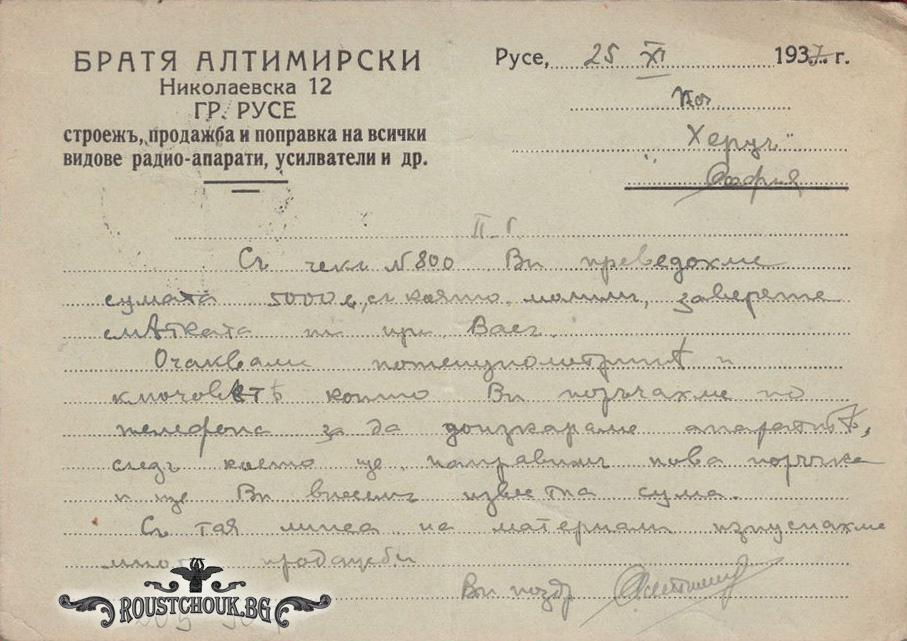 БРАТЯ АЛТИМИРСКИ
Николаевска 12
ГР. РУСЕ
строежъ, продажба и поправка на всички
видове радио-апарати, усилватели и др.
Русе, 25 XI 1937 г.
До
"Херцъ"
София
П. Г.
Съ чекъ № 800 Ви преведохме
сумата 5000 съ която, молимъ, заверете
смѣтката ни при Васъ.
Очакваме потенциометритѣ и
ключоветѣ които Ви поръчахме по
телефона за да доизкараме апаратитѣ,
следъ което ще направимъ нова поръчка
и ще Ви внесемъ известна сума.
Съ тая липса на материали изпуснахме
много продажби
Ви поздр
ROUSTCHOUK.BG